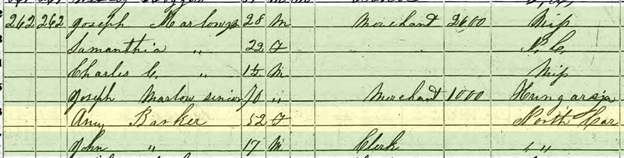 262 262 Joseph Marlow 28 M Merchant 2600 Mip
Samanthia " 22 F S. C.
Charles C. " 1½ M Mip
Joseph Marlow senior 70 " Merchant 1000 Hungaria
Amy Barker 52 F North Car
John " 17 M Clerk " "